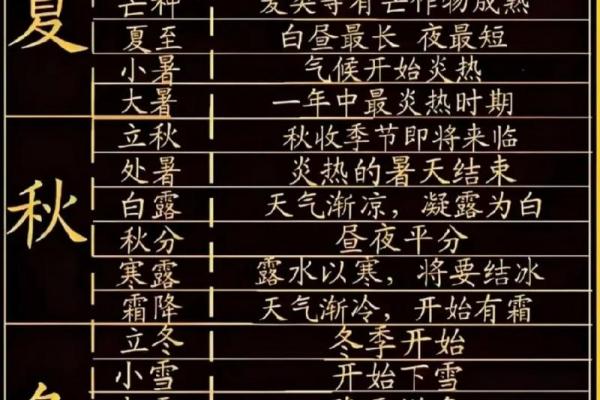 夏
芒种 麦类等有芒作物成熟
夏至 白昼最长 夜最短
小暑 气候开始炎热
大暑 一年中最炎热时期
秋
立秋 秋收季节即将来临
处暑 炎热的暑天结束
白露 天气渐凉，凝露为白
秋分 昼夜平分
寒露 露水以寒，将要结冰
霜降 天气渐冷，开始有霜
立冬 冬季开始
小雪 开始下雪